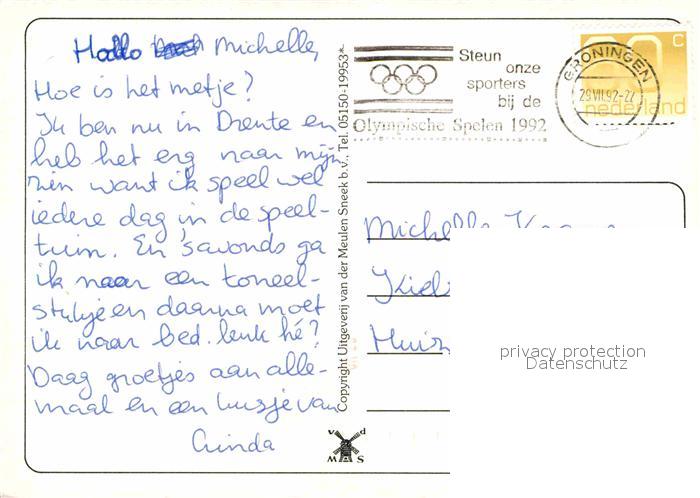 Hallo Michelle,
Hoe is het metje?
Ik ben nu in Drente en
heb het erg naar mijn
zien want ik speel wel
iedere dag in de speel-
tuin. En 's'avonds ga
ik naar een toneel-
stukje en daarna moet
ik naar bed. leuk hé?
Daag groetjes aan alle-
maal en een kusje van
Linda
Copyright Uitgeverij van der Meulen Sneek b.v., Tel. 05150-19953*
v d
M S
Steun
onze
sporters
bij de
Olympische Spelen 1992
GRONINGEN
29.VII.92-
60 C
nederland
Michell
Kiel
Huiz
privacy protection
Datenschutz